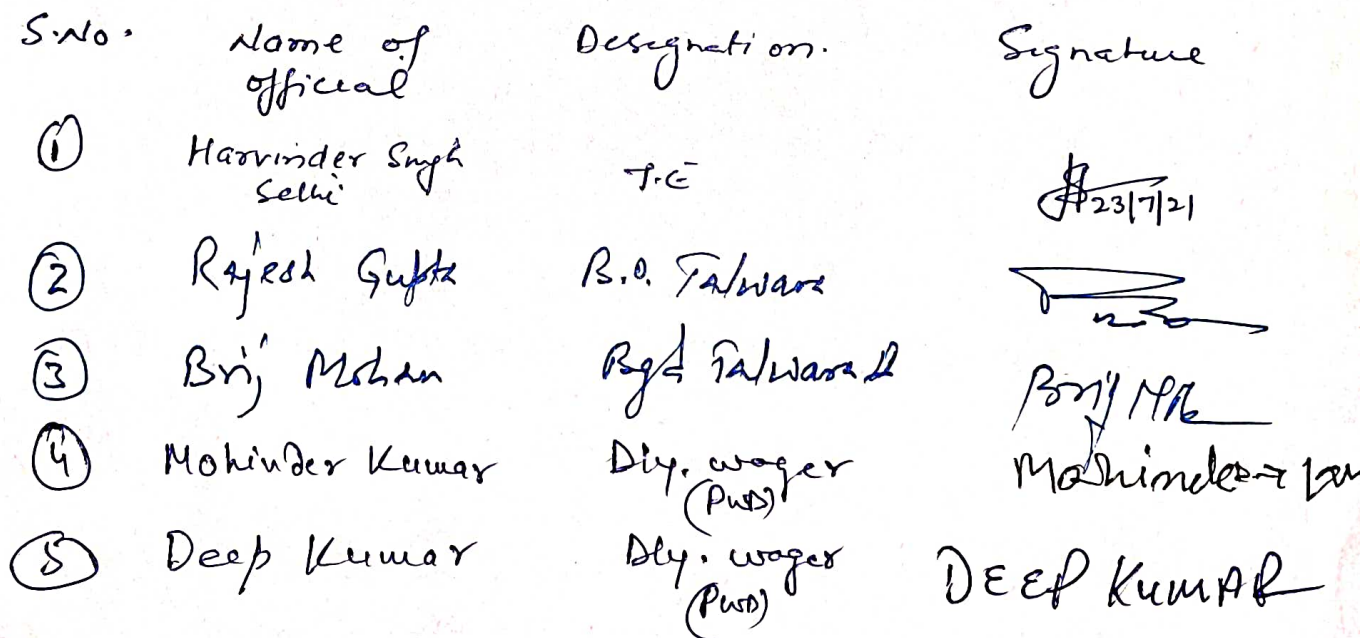 S.No. Name of Designation. Signature
official
① Harvinder Singh J.E
Sethi 23/7/21
② Rajesh Gupta B.O. Talwara
③ Brij Mohan Bgd Talwara II Brij
④ Mohinder Kumar Dly. wager Mohinder
(PWD)
⑤ Deep Kumar Dly. wager DEEP KUMAR
(PWD)